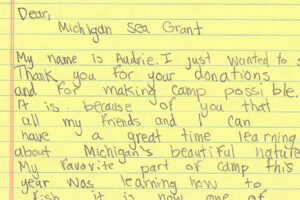 Dear,
Michigan Sea Grant
My name is Audrie. I just wanted to s
Thank you for your donations
and for making camp possible.
It is because of you that
all my friends and I can
have a great time learning
about Michigan's beautiful nature
My favorite part of camp this
year was learning how to
fish it is now one of